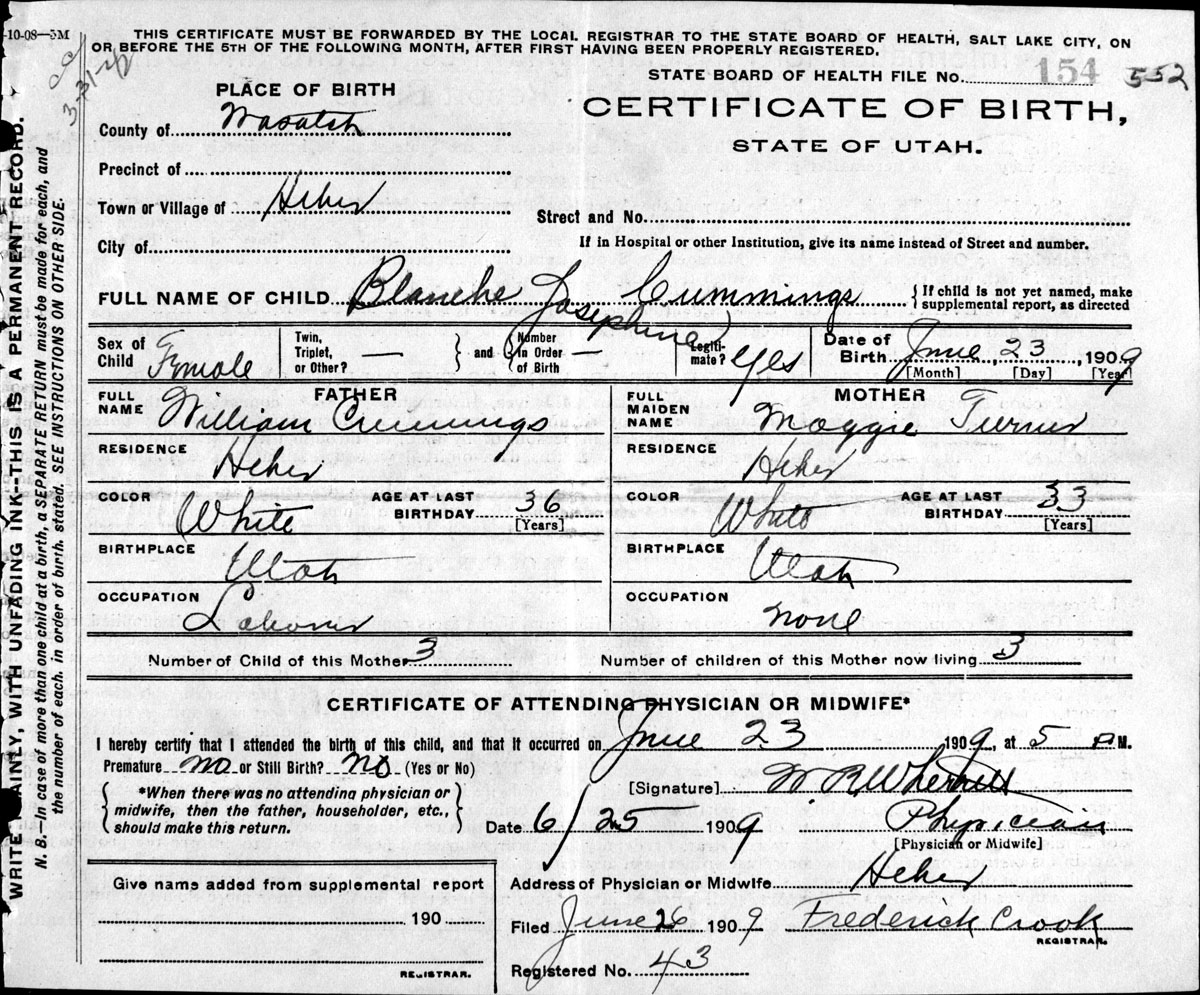 -10-08—5M
THIS CERTIFICATE MUST BE FORWARDED BY THE LOCAL REGISTRAR TO THE STATE BOARD OF HEALTH, SALT LAKE CITY, ON
OR BEFORE THE 5TH OF THE FOLLOWING MONTH, AFTER FIRST HAVING BEEN PROPERLY REGISTERED.
STATE BOARD OF HEALTH FILE No. 154 552
CERTIFICATE OF BIRTH,
STATE OF UTAH.
PLACE OF BIRTH
County of Wasatch
Precinct of
Town or Village of Heber
Street and No.
City of
If in Hospital or other Institution, give its name instead of Street and number.
FULL NAME OF CHILD Blanche Josephine Cummings
{ If child is not yet named, make
supplemental report, as directed
Sex of Child Female
Twin, Triplet, or Other? —
and
Number in Order of Birth —
Legiti-mate? Yes
Date of Birth June 23, 1909
[Month] [Day] [Year]
FATHER
FULL NAME William Cummings
RESIDENCE Heber
COLOR White
AGE AT LAST BIRTHDAY 36 [Years]
BIRTHPLACE Utah
OCCUPATION Laborer
MOTHER
FULL MAIDEN NAME Maggie Turner
RESIDENCE Heber
COLOR White
AGE AT LAST BIRTHDAY 33 [Years]
BIRTHPLACE Utah
OCCUPATION None
Number of Child of this Mother 3
Number of children of this Mother now living 3
CERTIFICATE OF ATTENDING PHYSICIAN OR MIDWIFE*
I hereby certify that I attended the birth of this child, and that it occurred on June 23 1909, at 5 P M.
Premature no or Still Birth? no (Yes or No)
*When there was no attending physician or
midwife, then the father, householder, etc.,
should make this return.
[Signature] W R Wherritt
Date 6/25 1909
Physician
[Physician or Midwife]
Address of Physician or Midwife Heber
Give name added from supplemental report
190
REGISTRAR.
Filed June 26 1909 Frederick Crook
REGISTRAR.
Registered No. 43
WRITE PLAINLY, WITH UNFADING INK--THIS IS A PERMANENT RECORD.
N. B.—In case of more than one child at a birth, a SEPARATE RETURN must be made for each, and
the number of each, in order of birth, stated. SEE INSTRUCTIONS ON OTHER SIDE.